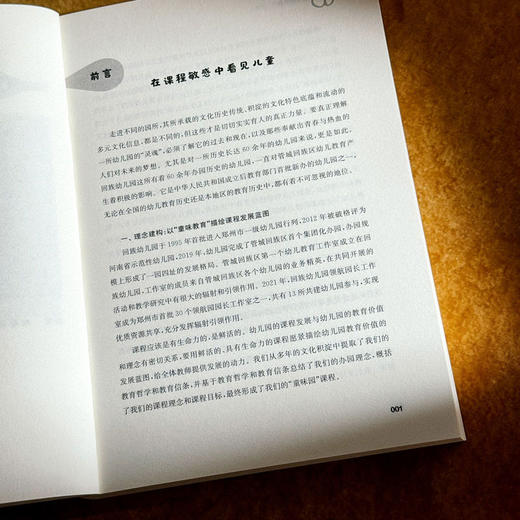 前言
在课程敏感中看见儿童
走进不同的园所，其所承载的文化历史传统、积淀的文化特色底蕴和流动的
多元文化信息，都是不同的，但这些才是切切实实育人的真正力量。要真正理解
一所幼儿园的“灵魂”，必须了解它的过去和现在，以及那些奉献出青春与热血的
人们对未来的梦想。尤其是对一所历史长达60余年的幼儿园来说，更是如此。
回族幼儿园这所有着60余年办园历史的幼儿园，一直对管城回族区幼儿教育产
生着积极的影响。它是中华人民共和国成立后教育部门首批新办的幼儿园之一，
无论在全国的幼儿教育历史还是本地区的教育历史中，都有着不可忽视的地位。
一、理念建构：以“童味教育”描绘课程发展蓝图
回族幼儿园于1995年首批进入郑州市一级幼儿园行列，2012年被破格评为
河南省示范性幼儿园，2019年，幼儿园完成了管城回族区首个集团化办园，办园规
模上形成了一园四址的发展格局。管城回族区第一个幼儿教育工作室成立在回
族幼儿园，工作室的成员来自管城回族区各个幼儿园的业务精英，在共同开展的
活动和教学研究中有很大的辐射和引领作用。2021年，回族幼儿园领航园长工作
室成为郑州市首批30个领航园园长工作室之一，共有13所共建幼儿园参与，实现
优质资源共享，充分发挥辐射引领作用。
课程应该是有生命力的，是鲜活的。幼儿园的课程发展与幼儿园的教育价值
和理念有密切关系，要用鲜活的、具有生命力的课程愿景描绘幼儿园教育价值的
发展蓝图，给全体教师提供发展的动力。我们从多年的文化积淀中提取了我们的
教育哲学和教育信条，并基于教育哲学和教育信条总结了我们的办园理念，概括
了我们的课程理念和课程目标，最终形成了我们的“童味园”课程。
001